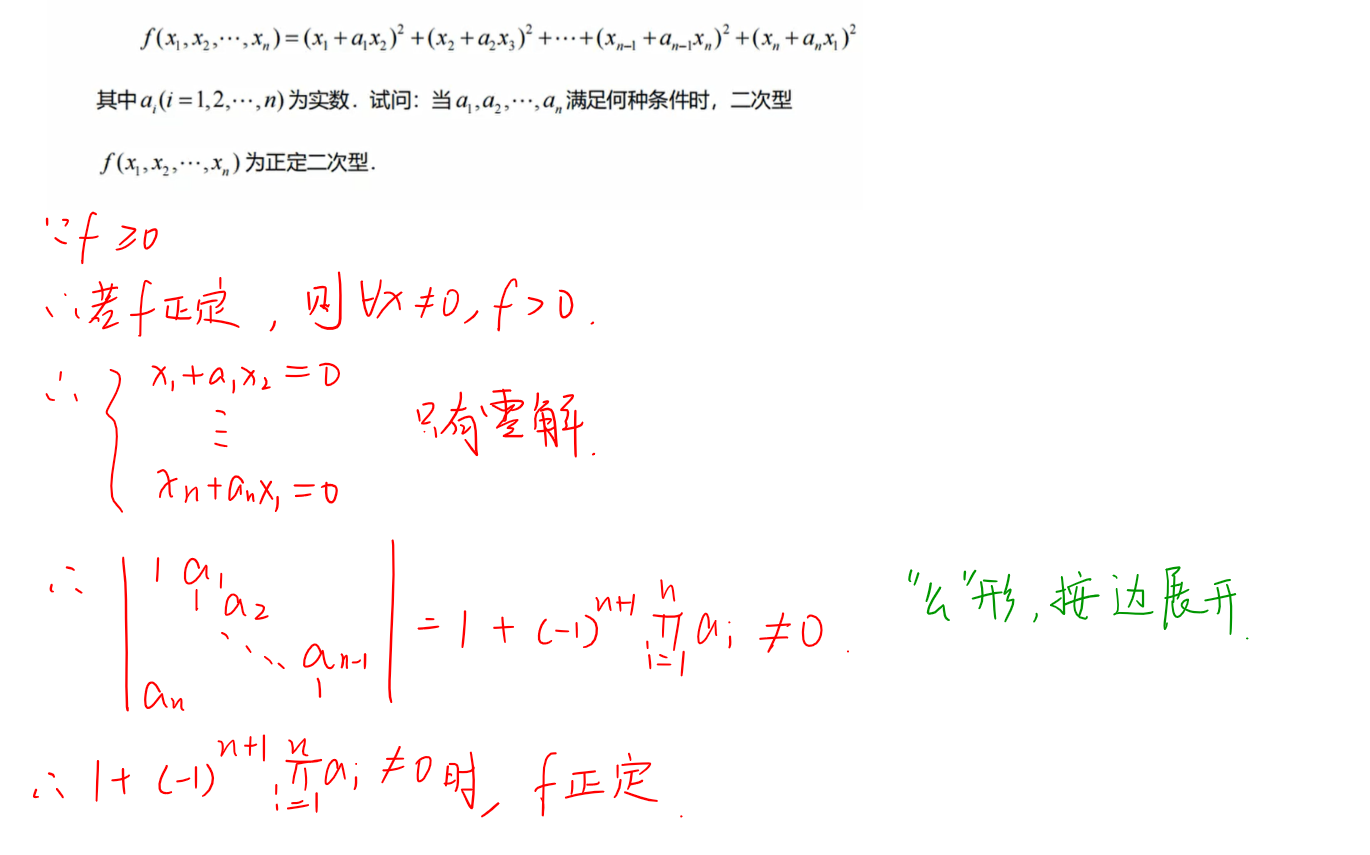 f(x₁,x₂,⋯,xₙ)=(x₁+a₁x₂)²+(x₂+a₂x₃)²+⋯+(xₙ₋₁+aₙ₋₁xₙ)²+(xₙ+aₙx₁)²
其中aᵢ(i=1,2,⋯,n)为实数．试问：当a₁,a₂,⋯,aₙ满足何种条件时，二次型
f(x₁,x₂,⋯,xₙ)为正定二次型．
∵f ≥0
∴若f正定，则∀x≠0, f>0.
∴ { x₁+a₁x₂=0
⋮
xₙ+aₙx₁=0
只有零解.
∴ | 1 a₁
1 a₂
⋱ aₙ₋₁
aₙ 1 | = 1 + (-1)ⁿ⁺¹ ∏ᵢ₌₁ⁿ aᵢ ≠0.
"幺"形, 按边展开.
∴ 1+ (-1)ⁿ⁺¹ ∏ᵢ₌₁ⁿ aᵢ ≠0时, f正定.